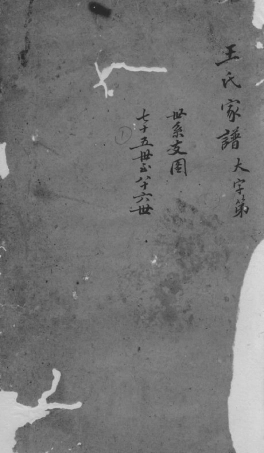 王氏家譜 大字第
世系支圖
七十五世至八十六世
①